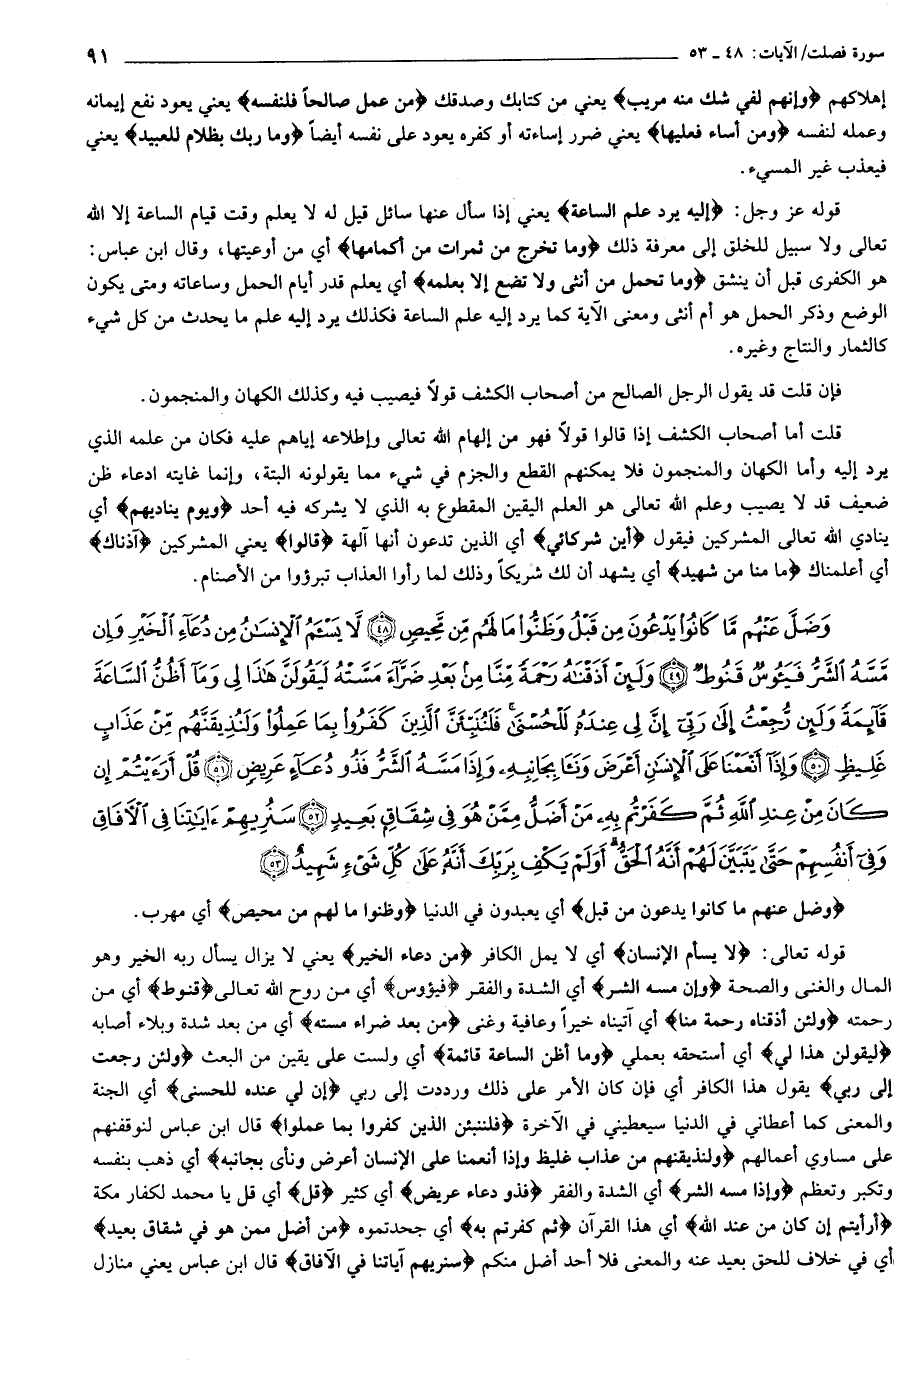 سورة فصلت/ الآيات: ٤٨ ـ ٥٣ ٩١
إهلاكهم ﴿وإنهم لفي شك منه مريب﴾ يعني من كتابك وصدقك ﴿من عمل صالحاً فلنفسه﴾ يعني يعود نفع إيمانه
وعمله لنفسه ﴿ومن أساء فعليها﴾ يعني ضرر إساءته أو كفره يعود على نفسه أيضاً ﴿وما ربك بظلام للعبيد﴾ يعني
فيعذب غير المسيء.
قوله عز وجل: ﴿إليه يرد علم الساعة﴾ يعني إذا سأل عنها سائل قيل له لا يعلم وقت قيام الساعة إلا الله
تعالى ولا سبيل للخلق إلى معرفة ذلك ﴿وما تخرج من ثمرات من أكمامها﴾ أي من أوعيتها، وقال ابن عباس:
هو الكفرى قبل أن ينشق ﴿وما تحمل من أنثى ولا تضع إلا بعلمه﴾ أي يعلم قدر أيام الحمل وساعاته ومتى يكون
الوضع وذكر الحمل هو أم أنثى ومعنى الآية كما يرد إليه علم الساعة فكذلك يرد إليه علم ما يحدث من كل شيء
كالثمار والنتاج وغيره.
فإن قلت قد يقول الرجل الصالح من أصحاب الكشف قولاً فيصيب فيه وكذلك الكهان والمنجمون.
قلت أما أصحاب الكشف إذا قالوا قولاً فهو من إلهام الله تعالى وإطلاعه إياهم عليه فكان من علمه الذي
يرد إليه وأما الكهان والمنجمون فلا يمكنهم القطع والجزم في شيء مما يقولونه البتة، وإنما غايته ادعاء ظن
ضعيف قد لا يصيب وعلم الله تعالى هو العلم اليقين المقطوع به الذي لا يشركه فيه أحد ﴿ويوم يناديهم﴾ أي
ينادي الله تعالى المشركين فيقول ﴿أين شركائي﴾ أي الذين تدعون أنها آلهة ﴿قالوا﴾ يعني المشركين ﴿آذناك﴾
أي أعلمناك ﴿ما منا من شهيد﴾ أي يشهد أن لك شريكاً وذلك لما رأوا العذاب تبرؤوا من الأصنام.
وَضَلَّ عَنْهُم مَّا كَانُوا۟ يَدْعُونَ مِن قَبْلُ وَظَنُّوا۟ مَا لَهُم مِّن مَّحِيصٍ ﴿٤٨﴾ لَّا يَسْـَٔمُ ٱلْإِنسَـٰنُ مِن دُعَآءِ ٱلْخَيْرِ وَإِن
مَّسَّهُ ٱلشَّرُّ فَيَـُٔوسٌ قَنُوطٌ ﴿٤٩﴾ وَلَئِنْ أَذَقْنَـٰهُ رَحْمَةً مِّنَّا مِنۢ بَعْدِ ضَرَّآءَ مَسَّتْهُ لَيَقُولَنَّ هَـٰذَا لِى وَمَآ أَظُنُّ ٱلسَّاعَةَ
قَآئِمَةً وَلَئِن رُّجِعْتُ إِلَىٰ رَبِّىٓ إِنَّ لِى عِندَهُۥ لَلْحُسْنَىٰ ۚ فَلَنُنَبِّئَنَّ ٱلَّذِينَ كَفَرُوا۟ بِمَا عَمِلُوا۟ وَلَنُذِيقَنَّهُم مِّنْ عَذَابٍ
غَلِيظٍ ﴿٥٠﴾ وَإِذَآ أَنْعَمْنَا عَلَى ٱلْإِنسَـٰنِ أَعْرَضَ وَنَـَٔا بِجَانِبِهِۦ وَإِذَا مَسَّهُ ٱلشَّرُّ فَذُو دُعَآءٍ عَرِيضٍ ﴿٥١﴾ قُلْ أَرَءَيْتُمْ إِن
كَانَ مِنْ عِندِ ٱللَّهِ ثُمَّ كَفَرْتُم بِهِۦ مَنْ أَضَلُّ مِمَّنْ هُوَ فِى شِقَاقٍۭ بَعِيدٍ ﴿٥٢﴾ سَنُرِيهِمْ ءَايَـٰتِنَا فِى ٱلْـَٔافَاقِ
وَفِىٓ أَنفُسِهِمْ حَتَّىٰ يَتَبَيَّنَ لَهُمْ أَنَّهُ ٱلْحَقُّ ۗ أَوَلَمْ يَكْفِ بِرَبِّكَ أَنَّهُۥ عَلَىٰ كُلِّ شَىْءٍ شَهِيدٌ ﴿٥٣﴾
﴿وضل عنهم ما كانوا يدعون من قبل﴾ أي يعبدون في الدنيا ﴿وظنوا ما لهم من محيص﴾ أي مهرب.
قوله تعالى: ﴿لا يسأم الإنسان﴾ أي لا يمل الكافر ﴿من دعاء الخير﴾ يعني لا يزال يسأل ربه الخير وهو
المال والغنى والصحة ﴿وإن مسه الشر﴾ أي الشدة والفقر ﴿فيؤوس﴾ أي من روح الله تعالى﴿قنوط﴾ أي من
رحمته ﴿ولئن أذقناه رحمة منا﴾ أي آتيناه خيراً وعافية وغنى ﴿من بعد ضراء مسته﴾ أي من بعد شدة وبلاء أصابه
﴿ليقولن هذا لي﴾ أي أستحقه بعملي ﴿وما أظن الساعة قائمة﴾ أي ولست على يقين من البعث ﴿ولئن رجعت
إلى ربي﴾ يقول هذا الكافر أي فإن كان الأمر على ذلك ورددت إلى ربي ﴿إن لي عنده للحسنى﴾ أي الجنة
والمعنى كما أعطاني في الدنيا سيعطيني في الآخرة ﴿فلننبئن الذين كفروا بما عملوا﴾ قال ابن عباس لنوقفنهم
على مساوي أعمالهم ﴿ولنذيقنهم من عذاب غليظ وإذا أنعمنا على الإنسان أعرض ونأى بجانبه﴾ أي ذهب بنفسه
وتكبر وتعظم ﴿وإذا مسه الشر﴾ أي الشدة والفقر ﴿فذو دعاء عريض﴾ أي كثير ﴿قل﴾ أي قل يا محمد لكفار مكة
﴿أرأيتم إن كان من عند الله﴾ أي هذا القرآن ﴿ثم كفرتم به﴾ أي جحدتموه ﴿من أضل ممن هو في شقاق بعيد﴾
أي في خلاف للحق بعيد عنه والمعنى فلا أحد أضل منكم ﴿سنريهم آياتنا في الآفاق﴾ قال ابن عباس يعني منازل